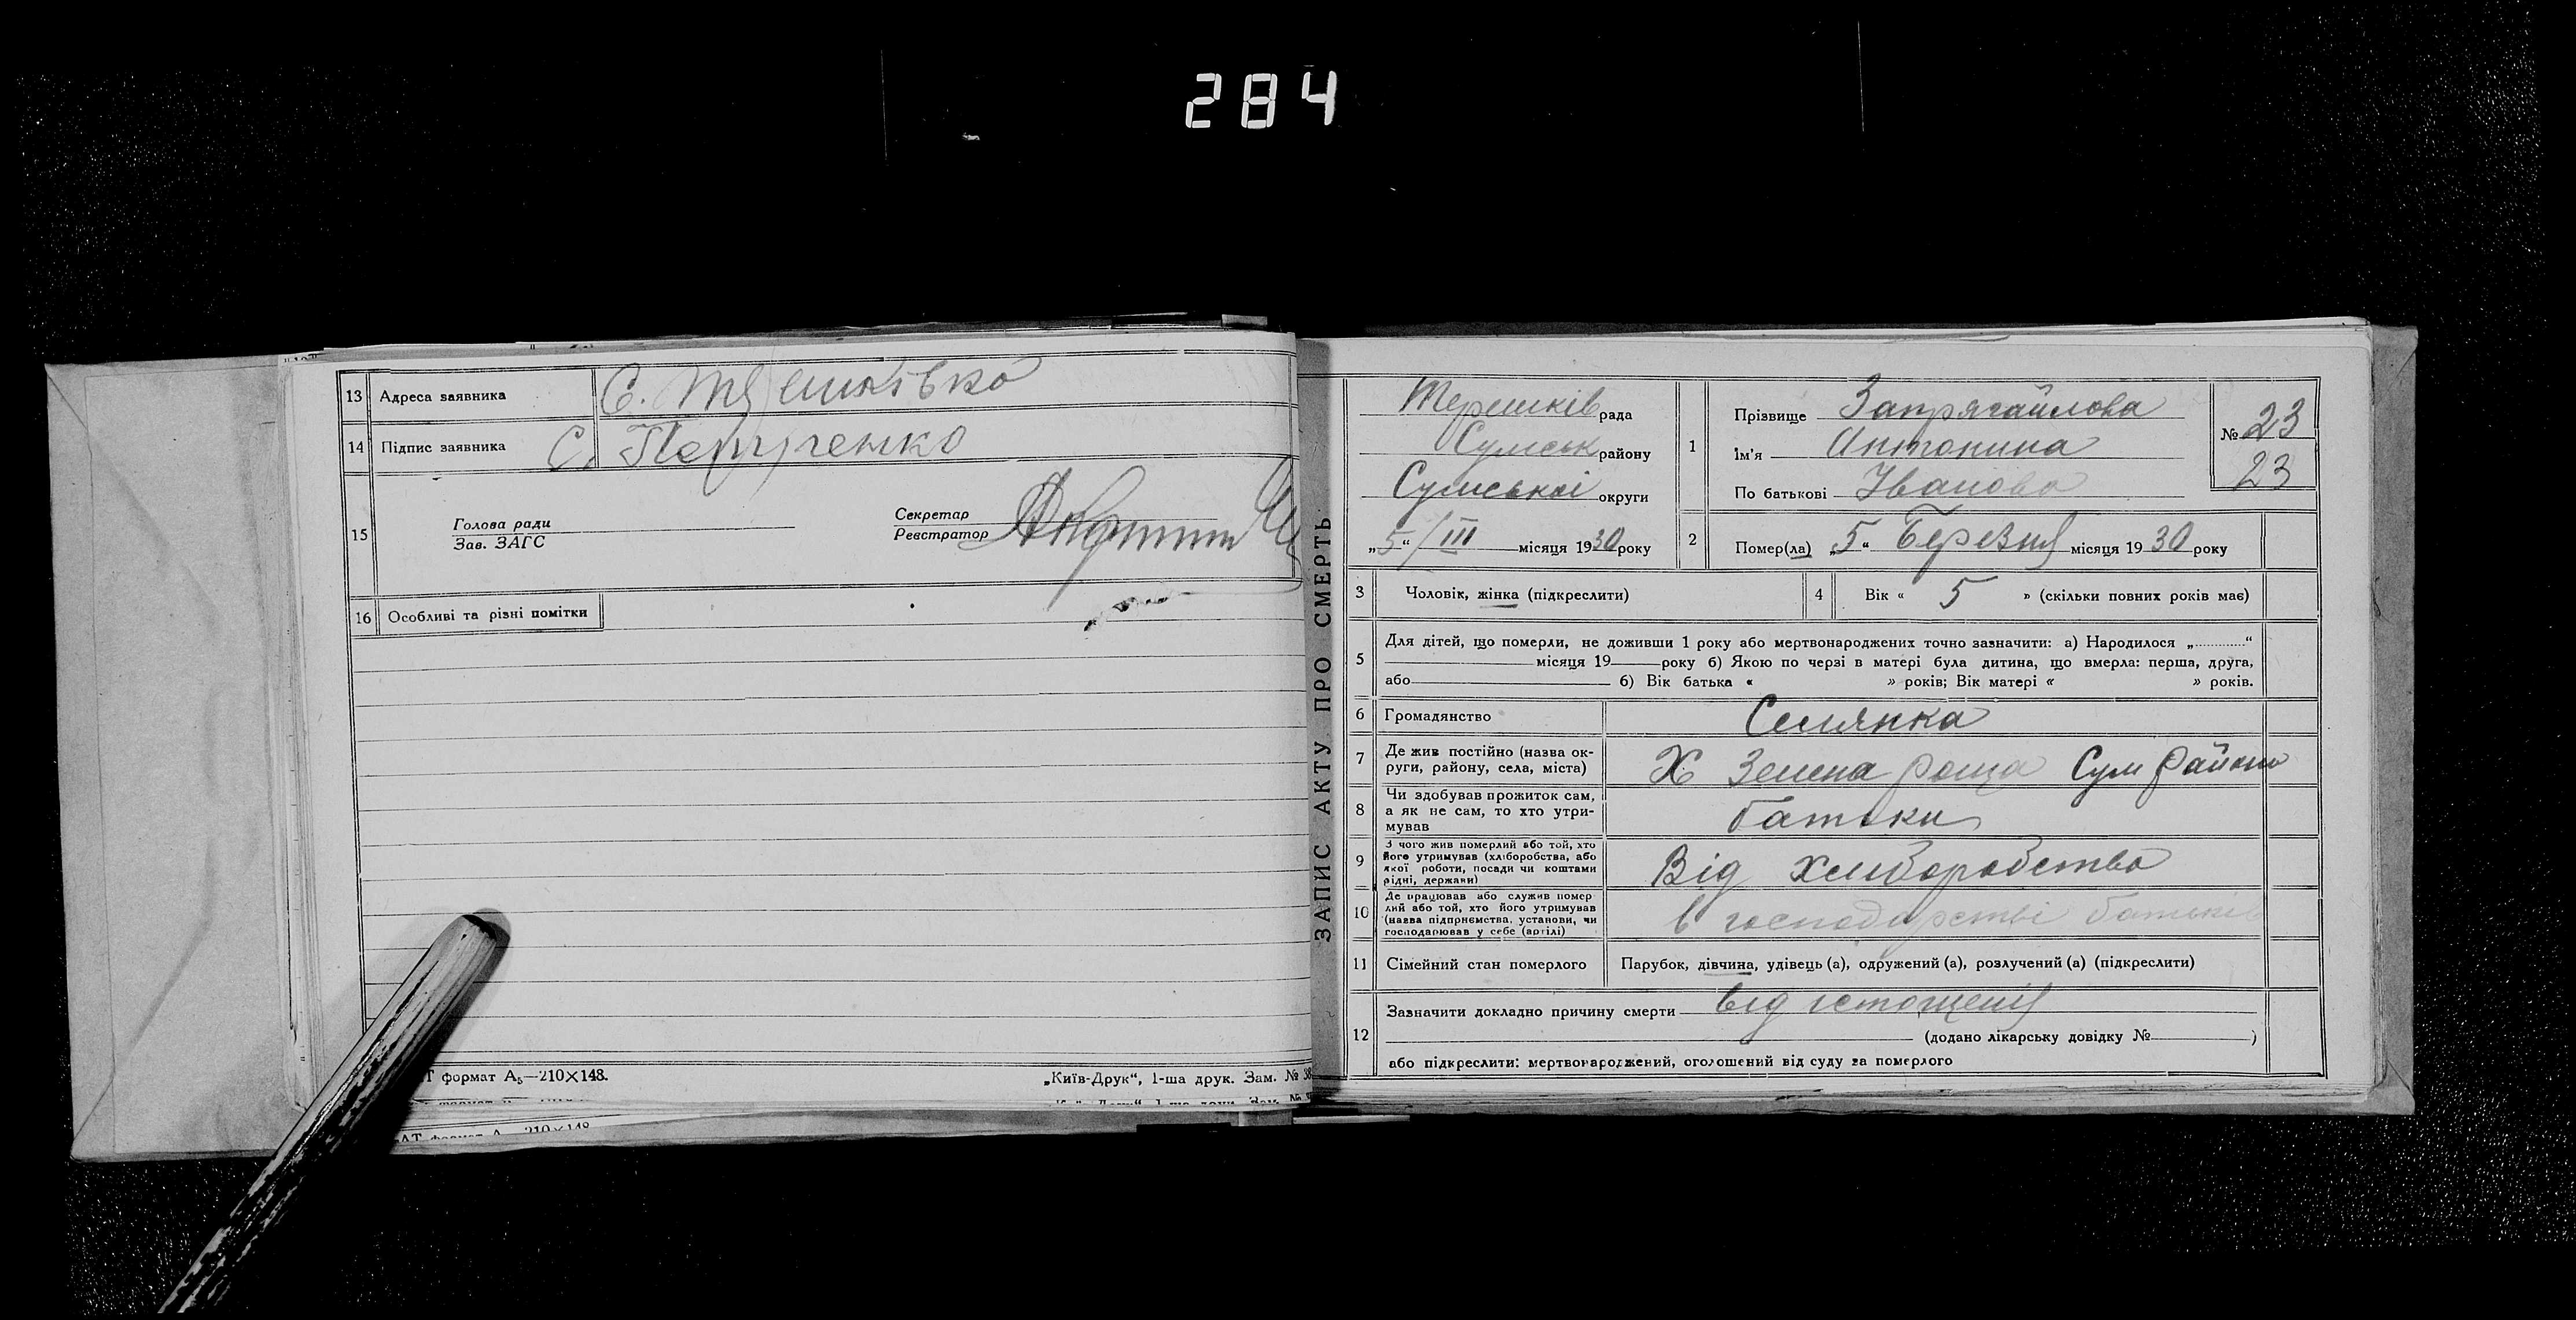 284
13 Адреса заявника С. Терешківка
14 Підпис заявника С. Петриченко
15 Голова ради
Зав. ЗАГС
Секретар
Реєстратор
16 Особливі та різні помітки
Т формат А₅—210×148.
„Київ-Друк“, 1-ша друк. Зам. № 38
АТ формат А 210×148
ЗАПИС АКТУ ПРО СМЕРТЬ
Терешків рада
Сумськ району
Сумської округи
„5“ / III місяця 1930 року
1 Прізвище Запрягайлова
Ім'я Антонина
По батькові Іванова
№ 23
23
2 Помер(ла) „5“ Березня місяця 1930 року
3 Чоловік, жінка (підкреслити)
4 Вік « 5 » (скільки повних років має)
5 Для дітей, що померли, не доживши 1 року або мертвонароджених точно зазначити: а) Народилося „..........“
місяця 19 року б) Якою по черзі в матері була дитина, що вмерла: перша, друга,
або б) Вік батька « » років; Вік матері « » років.
6 Громадянство Селянка
7 Де жив постійно (назва ок-
руги, району, села, міста) Х Зелена роща Сум району
8 Чи здобував прожиток сам,
а як не сам, то хто утри-
мував батьки
9 З чого жив померлий або той, хто
його утримував (хліборобства, або
якої роботи, посади чи коштами
рідні, держави) Від хліборобства
10 Де працював або служив помер
лий або той, хто його утримував
(назва підприємства, установи, чи
господарював у себе (артілі) в господарстві батьків
11 Сімейний стан померлого Парубок, дівчина, удівець (а), одружений (а), розлучений (а) (підкреслити)
12 Зазначити докладно причину смерти від істощенія
(додано лікарську довідку № )
або підкреслити: мертвонароджений, оголошений від суду за померлого